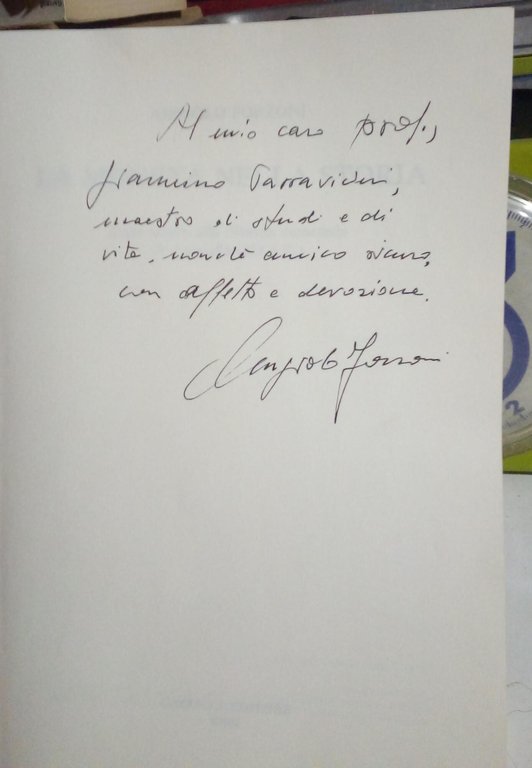 Al mio caro prof.,
Giannino Parravicini,
maestro di studi e di
vita, nonché amico sicuro,
con affetto e devozione.
2